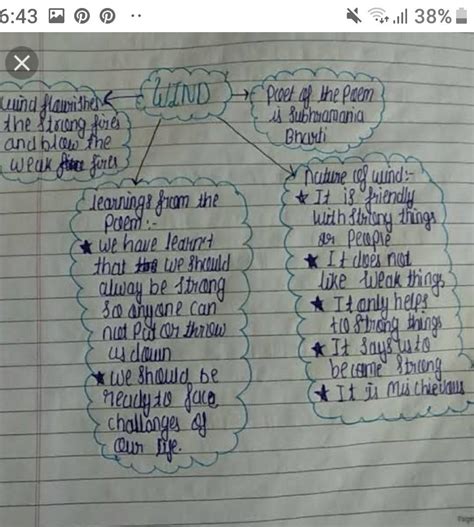 6:43
38%
WIND
wind flourishes
the strong fires
and blow the
weak fires
Poet of the Poem
is Subhramania
Bharti
learnings from the
Poem:-
★ we have learn't
that we should
alway be strong
so anyone can
not Put or throw
us down
★ we should be
ready to face
challanges of
our life.
Nature of wind:-
★ It is friendly
with strong things
or People
★ It does not
like weak things
★ It only helps
to strong things
★ It says us to
become strong
★ It is Mischievous